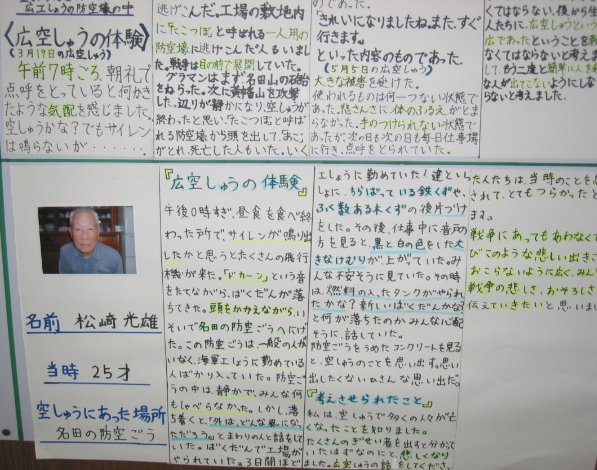 広工しょうの防空壕の中
《広空しゅうの体験》
(3月19日の広空しゅう)
午前7時ごろ、朝礼で
点呼をとっていると何かき
たような気配を感じました。
空しゅうかな?でもサイレン
は鳴らないが・・・・・・・・
逃げこんだ。工場の敷地内
に「たこつぼ」と呼ばれる一人用の
防空壕に逃げこんだ人もいまし
た。戦争は目の前で展開していた。
グラマンはまず名田山の砲台
をねらった。次に黄幡山を攻撃
し、辺りが静かになり、空しゅうが
終わったと思い、たこつぼと呼ば
れる防空壕から頭を出して、あご
がとれ、死亡した人もいた。いく
のであった。
「きれいになりましたね。また、すぐ
行きます。」
といった内容のものであった。
(5月5日の広空しゅう)
大きな被害を受けた。
使われるものは何一つない状態で
あった。悲しさに、体のふるえがと
まらなかった。手のつけられない状態で
あったが、次の日も次の日も毎日仕事場
に行き、点呼をとられていた。
てはならない。後から生
人たちに、広空しゅうという
広であったということを教
なくてはならないと考えまし
て、もう二度と簡単に人を殺
な人が出てこないようにしな
らないと考えました。
名前 松崎 光雄
当時 25才
空しゅうにあった場所
名田の防空ごう
『広空しゅうの体験』
午後0時すぎ、昼食を食べ終
わった所で、サイレンが鳴り出
したかと思うとたくさんの飛行
機が来た。「ドカーン」という音
をたてながら、ばくだんが落
ちてきた。頭をかかえながら、
いそいで名田の防空ごうへにげ
た。この防空ごうは、一般の人が
いなく、海軍工しょうに勤めている
人ばかり入っていた。防空ご
うの中は、静かで、みんな何
もしゃべらなかった。しかし、落
ち着くと、「外は、どんな風にな
ただろう。」とまわりの人と話をして
いた。ばくだんで工場が
やられていた。3日間ほど
工しょうに勤めていた人達とい
しょに、ちらばっている鉄くずや、
ふく数ある木くずの後片づけ
をした。その後、仕事中に音戸の
方を見ると、黒と白の色をした大
きなけむりが上がっていた。み
んな不安そうに見ていた。その時
は、燃料の入ったタンクがやられ
たかな?新しいばくだんかな?
と何が落ちたのかみんな心配
そうに、話していた。
防空ごうをうめたコンクリートを見る
と、空しゅうのことを思い出す。思い
出したくないひさんな思い出だ。
『考えさせられたこと』
私は、空しゅうで多くの人々が亡く
なったことを知りました。
たくさんのぎせい者を出すと分かっ
ていたはずなのにと、悲しくなり
ました。広空しゅうの話をしてくださっ
た人たちは、当時のことを思
されて、とてもつらかったと
ます。
戦争にあってもあわなくて
びこのような悲しい出きご
おこらないように広く、みん
戦争の悲しさ、おそろしさ
伝えていきたいと思いま